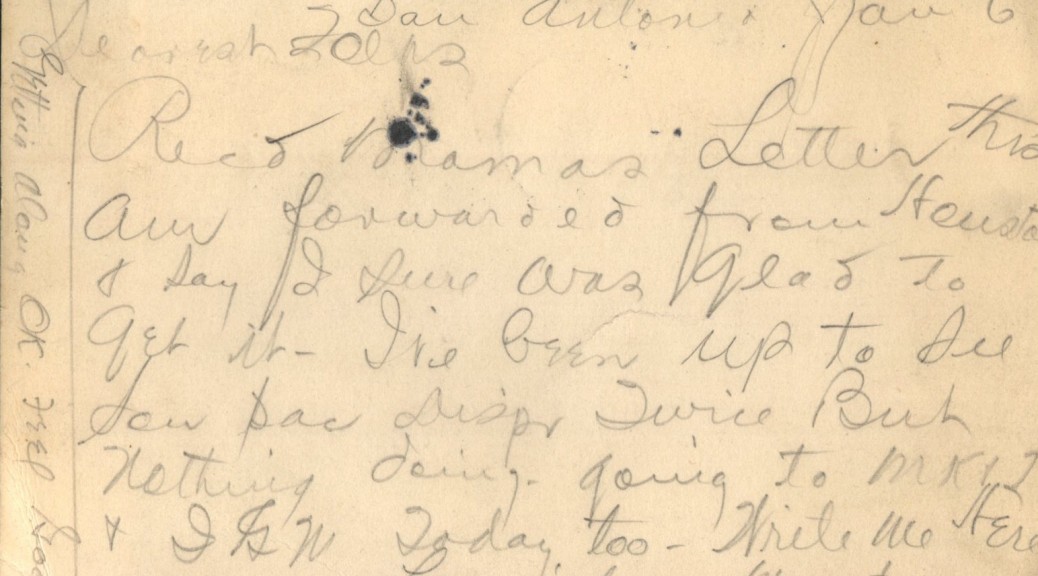 San Antonio Jan 6
Dearest Folks
Recd Mamas Letter this
am forwarded from Housto
& Say I Sure was Glad to
Get it - I've been up to See
Sou Pac Dispr Twice But
Nothing doing. going to MK&T
& I & G N Today too - Write Me Here
Getting along OK.